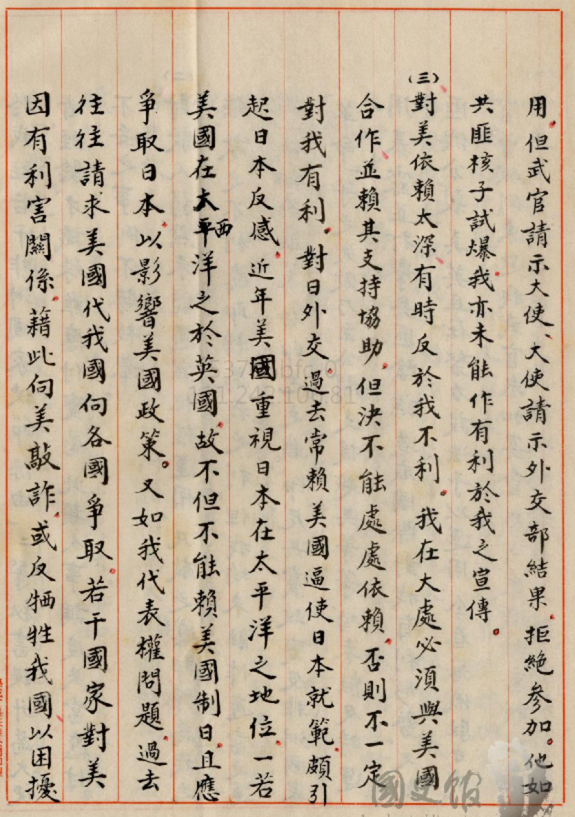 用、但武官請示大使、大使請示外交部結果、拒絕參加。他如
共匪核子試爆、我亦未能作有利於我之宣傳。
(三)對美依賴太深、有時反於我不利。我在大處必須與美國
合作、並賴其支持協助、但決不能處處依賴、否則不一定
對我有利。對日外交、過去常賴美國逼使日本就範、頗引
起日本反感、近年美國重視日本在太平洋之地位、一若
美國在太西平洋之於英國、故不但不能賴美國制日、且應
爭取日本、以影響美國政策。又如我代表權問題、過去
往往請求美國代我國向各國爭取、若干國家對美
因有利害關係、藉此向美敲詐、或反犧牲我國以困擾
國史館